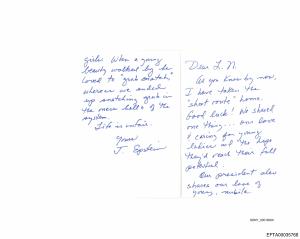 Dear L. N.
As you know by now,
I have taken the
"short route" home.
Good luck! We shared
one thing... our love
& caring for young
ladies and the hope
they'd reach their full
potential.
Our president also
shares our love of
young, nubile
girls. When a young
beauty walked by he
loved to "grab snatch,"
whereas we ended
up snatching grub in
the mess halls of the
system.
Life is unfair.
Yours
J. Epstein
EFTA00036768